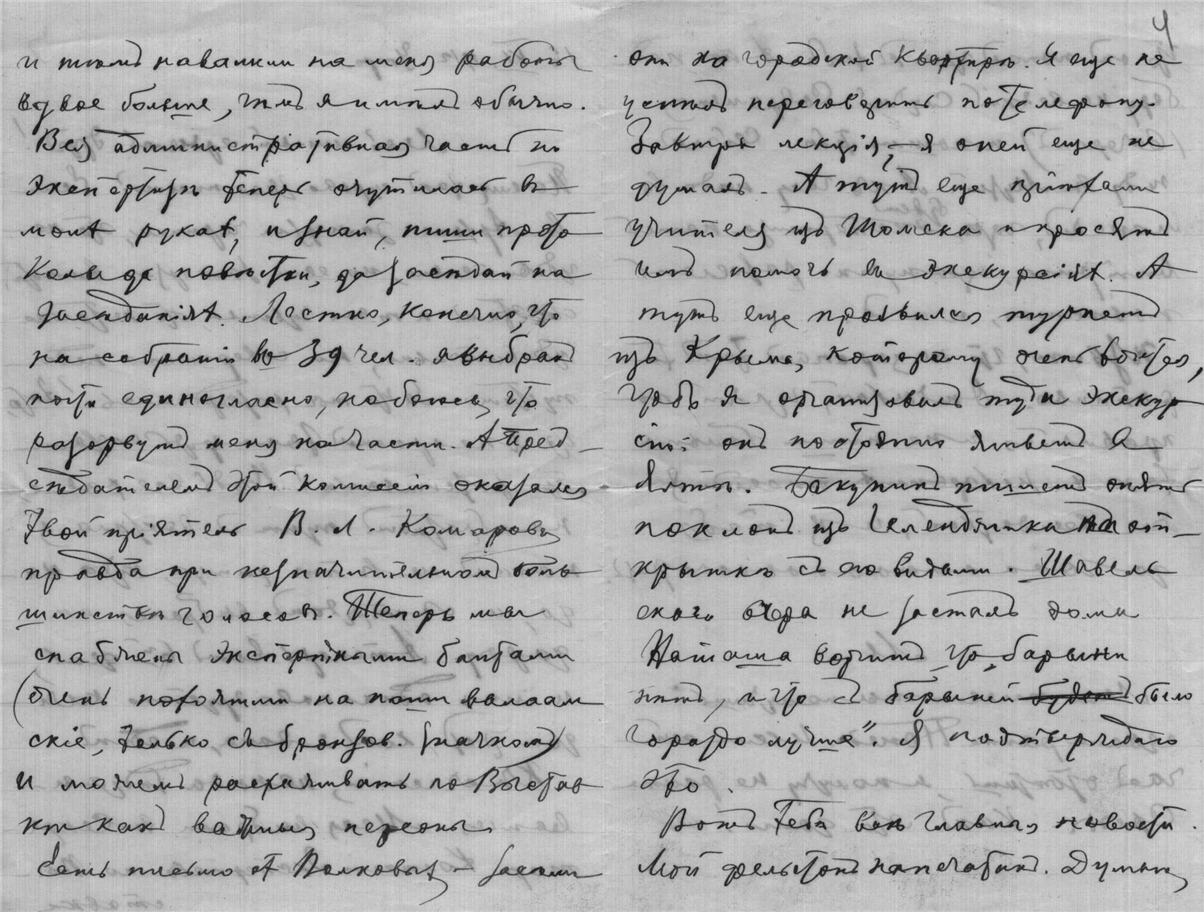 и тѣмъ навалили на меня работы
вдвое больше, чѣмъ я имѣлъ обычно.
Вся административная часть по
экспертизѣ теперь очутилась въ
моихъ рукахъ, и знай, пиши прото
колы да повѣстки, да засѣдай на
засѣданіяхъ. Лестно, конечно, что
на собраніи въ 39 чел. я выбранъ
почти единогласно, но боюсь, что
разорвутъ меня на части. А пред-
сѣдателемъ этой комиссіи оказался
твой пріятель В. Л. Комаровъ,
правда при незначительномъ боль
шинствѣ голосовъ. Теперь мы
снабжены экспертными бантами
(очень похожими на наши валаам
скіе, только съ бронзов. значкомъ)
и можемъ расхаживать по Выстав
кѣ какъ важныя персоны.
Есть письмо отъ Волковыхъ –
4
они на городской квартирѣ. Я еще не
успѣлъ переговорить по телефону.
Завтра лекція, – я о ней еще не
думалъ. А тутъ еще пріѣхали
учителя изъ Томска и просятъ
имъ помочь въ экскурсіяхъ. А
тутъ еще проявился туристъ
изъ Крыма, которому очень хочется,
чтобъ я организовалъ туда экскур
сію: онъ постоянно живетъ въ
Ялтѣ. Бакунинъ пишетъ опять
поклонъ изъ Геленджика на от-
крыткѣ съ его видами. Шавель
скаго вчера не засталъ дома
Наташа говоритъ, что „барыни
нѣтъ, и что съ барыней было
гораздо лучше“. Я подтверждаю
это.
Вотъ тебѣ всѣ главныя новости.
Мой фельетонъ напечатанъ. Думаю,